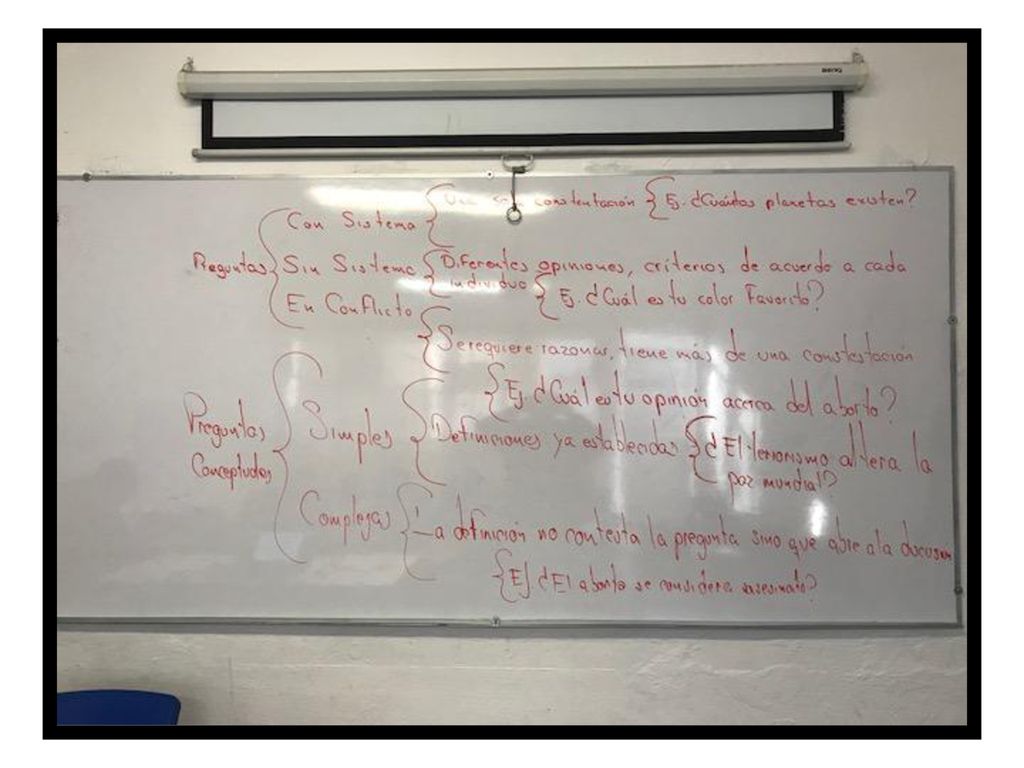 BENQ
Con Sistema { Una sola constentación { Ej. ¿Cuántos planetas existen?
Preguntas { Sin Sistema { Diferentes opiniones, criterios de acuerdo a cada
individuo { Ej. ¿Cuál es tu color Favorito?
En Conflicto
{ Se requiere razonar, tiene más de una constestación
{ Ej. ¿Cuál es tu opinión acerca del aborto?
Preguntas Conceptudes { Simples { Definiciones ya establecidas { ¿El terrorismo altera la
paz mundial?
Complejas { La definición no contesta la pregunta sino que abre a la discusión
{ Ej ¿El aborto se considera asesinato?